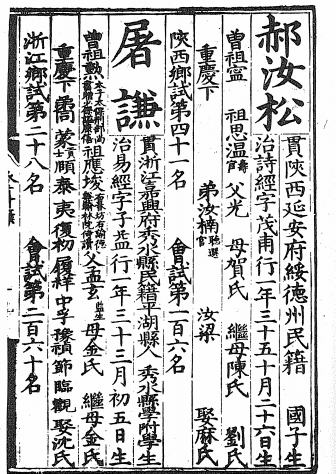 郝汝松
貫陝西延安府綏德州民籍　國子生
治詩經字茂甫行一年三十五十月二十六日生
曾祖寧　祖思温　父光　母賀氏　繼母陳氏　劉氏
重慶下　弟汝楠　汝梁　娶麻氏
陝西鄉試第四十一名　會試第一百六名
屠謙
貫浙江嘉興府秀水縣民籍平湖縣人　秀水縣學附學生
治易經字子益行一年三十三月初五日生
曾祖勲　祖應埈　父孟玄　母金氏　繼母金氏
重慶下　喬　蒙　頤　泰　夷　復初　履祥　中孚　豫禎　節　臨　觀　娶沈氏
浙江鄉試第二十八名　會試第二百六十名